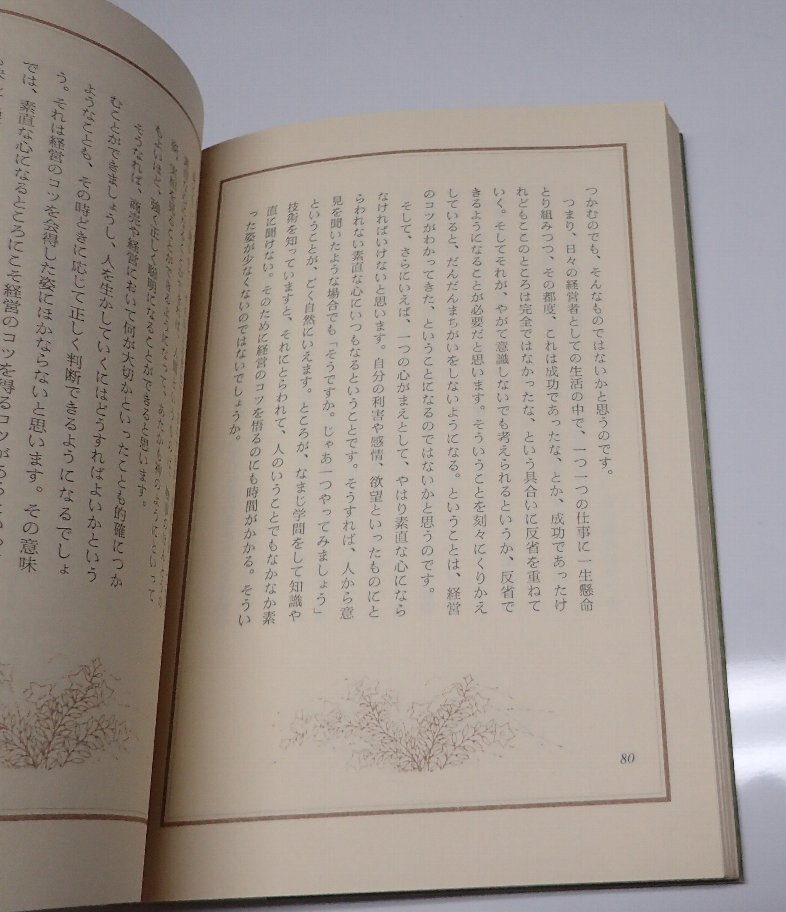 つかむのでも、そんなものではないかと思うのです。
つまり、日々の経営者としての生活の中で、一つ一つの仕事に一生懸命
とり組みつつ、その都度、これは成功であったな、とか、成功であったけ
れどもここのところは完全ではなかったな、という具合いに反省を重ねて
いく。そしてそれが、やがて意識しないでも考えられるというか、反省で
きるようになることが必要だと思います。そういうことを刻々にくりかえ
していると、だんだんまちがいをしないようになる。ということは、経営
のコツがわかってきた、ということになるのではないかと思うのです。
そして、さらにいえば、一つの心がまえとして、やはり素直な心になら
なければいけないと思います。自分の利害や感情、欲望といったものにと
らわれない素直な心にいつもなるということです。そうすれば、人から意
見を聞いたような場合でも「そうですか。じゃあ一つやってみましょう」
ということが、ごく自然にいえます。ところが、なまじ学問をして知識や
技術を知っていますと、それにとらわれて、人のいうことでもなかなか素
直に聞けない。そのために経営のコツを悟るのにも時間がかかる。そうい
った姿が少なくないのではないでしょうか。
80
もよいほど、強く正しく聡明になることができると思います。
そうなれば、商売や経営において何が大切かといったことも的確につか
むことができましょうし、人を生かしていくにはどうすればよいかという
ようなことも、その時どきに応じて正しく判断できるようになるでしょ
う。それは経営のコツを会得した姿にほかならないと思います。その意味
では、素直な心になるところにこそ経営のコツを得るコツがある